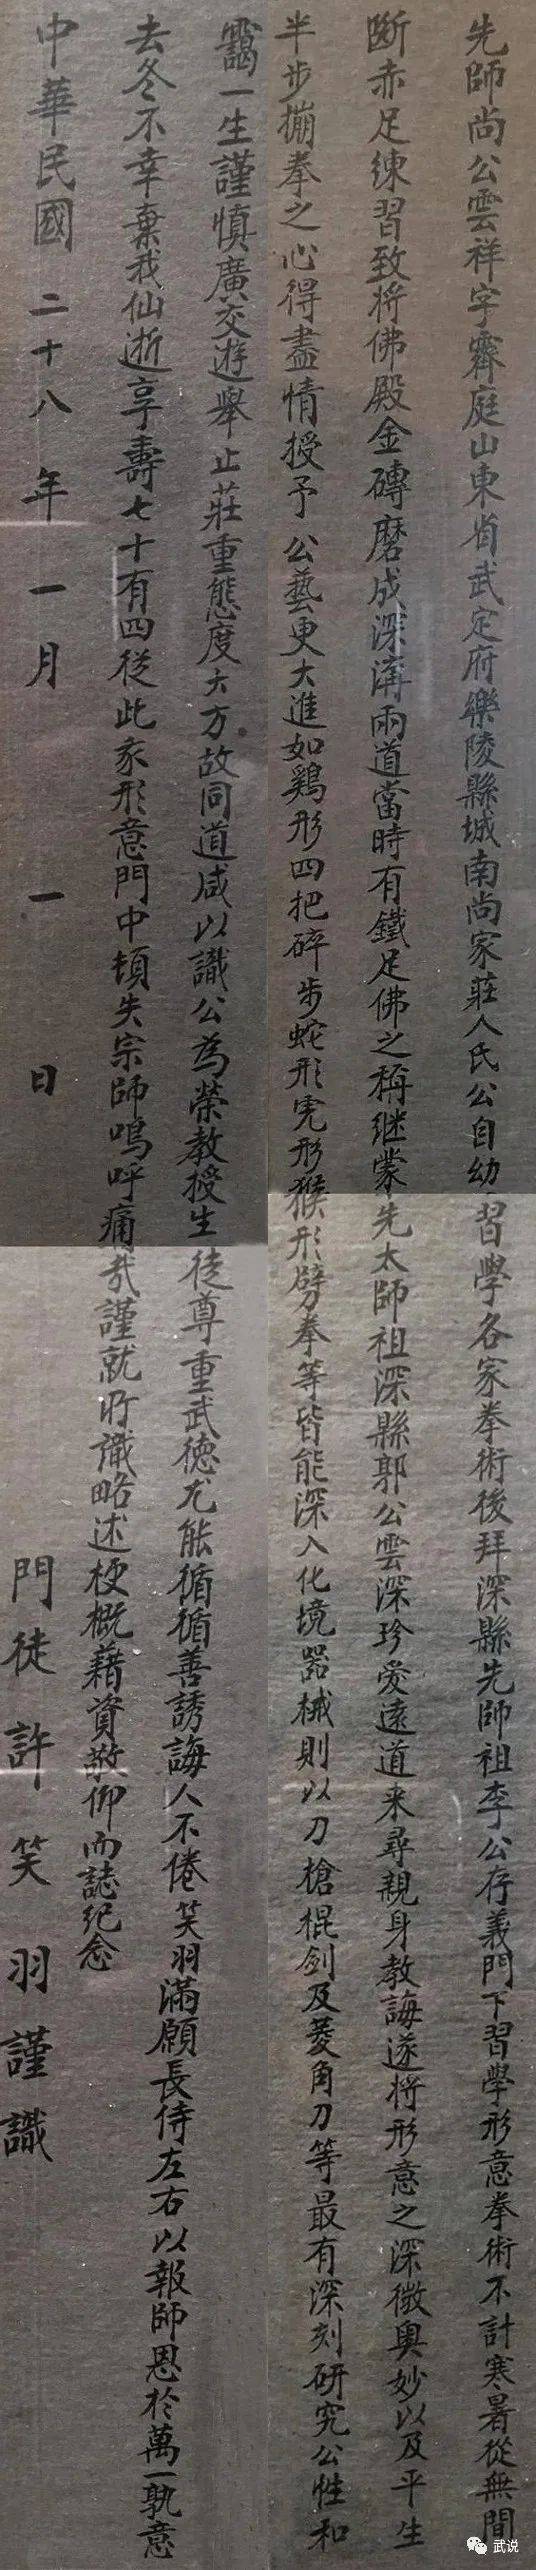 先師尚公雲祥字霽庭山東省武定府樂陵縣城南尚家莊人氏公自幼習學各家拳術後拜深縣先師祖李公存義門下習學形意拳術不計寒暑從無間
斷赤足練習致将佛殿金磚磨成深溝兩道當時有鐵足佛之稱继蒙先太師祖深縣郭公雲深珍愛遠道来尋親身教誨遂将形意之深微奥妙以及平生
半步摧拳之心得盡情授予公藝更大進如鷄形四把碎步蛇形虎形猴形劈拳等皆能深入化境器械則以刀槍棍剑及菱角刀等最有深刻研究公性和
靄一生謹慎廣交遊舉止莊重態度大方故同道咸以識公為榮教授生徒尊重武德尤能循循善誘誨人不倦笑羽滿願長侍左右以報師恩於萬一孰意
去冬不幸棄我仙逝享壽七十有四從此象形意門中頓失宗師嗚呼痛哉謹就所識略述梗概藉資敬仰而誌紀念
中華民國二十八年一月一日
門徒許笑羽謹識
武说